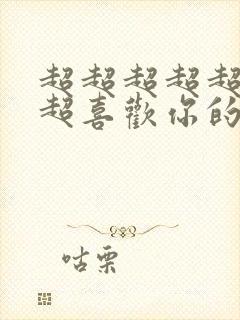 超超超超超
超喜歡你的
咕栗